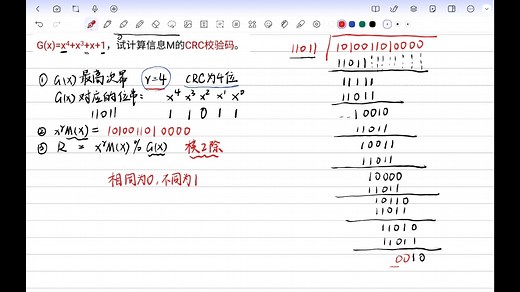 G(x)=x⁴+x³+x+1，试计算信息M的CRC校验码。
① G(x)最高次幂 r=4 CRC为4位
G(x)对应的位串: x⁴ x³ x² x¹ x⁰
11011 1 1 0 1 1
② xʳM(x) = 1010011010000
③ R = xʳM(x) % G(x) 模2除
相同为0,不同为1
11011 1010011010000
11011
11111
11011
10010
11011
10011
11011
10000
11011
10110
11011
11010
11011
0010